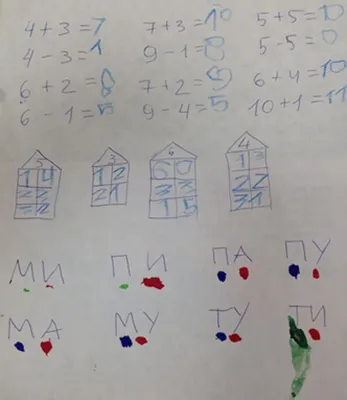 4+3=7 7+3=10 5+5=10
4-3=1 9-1=8 5-5=0
6+2=8 7+2=9 6+4=10
6-1=5 9-4=5 10+1=11
5 3 6 4
1 4 1 2 6 0 1 3
2 3 2 1 3 3 2 2
3 2 1 5 3 1
МИ ПИ ПА ПУ
МА МУ ТУ ТИ